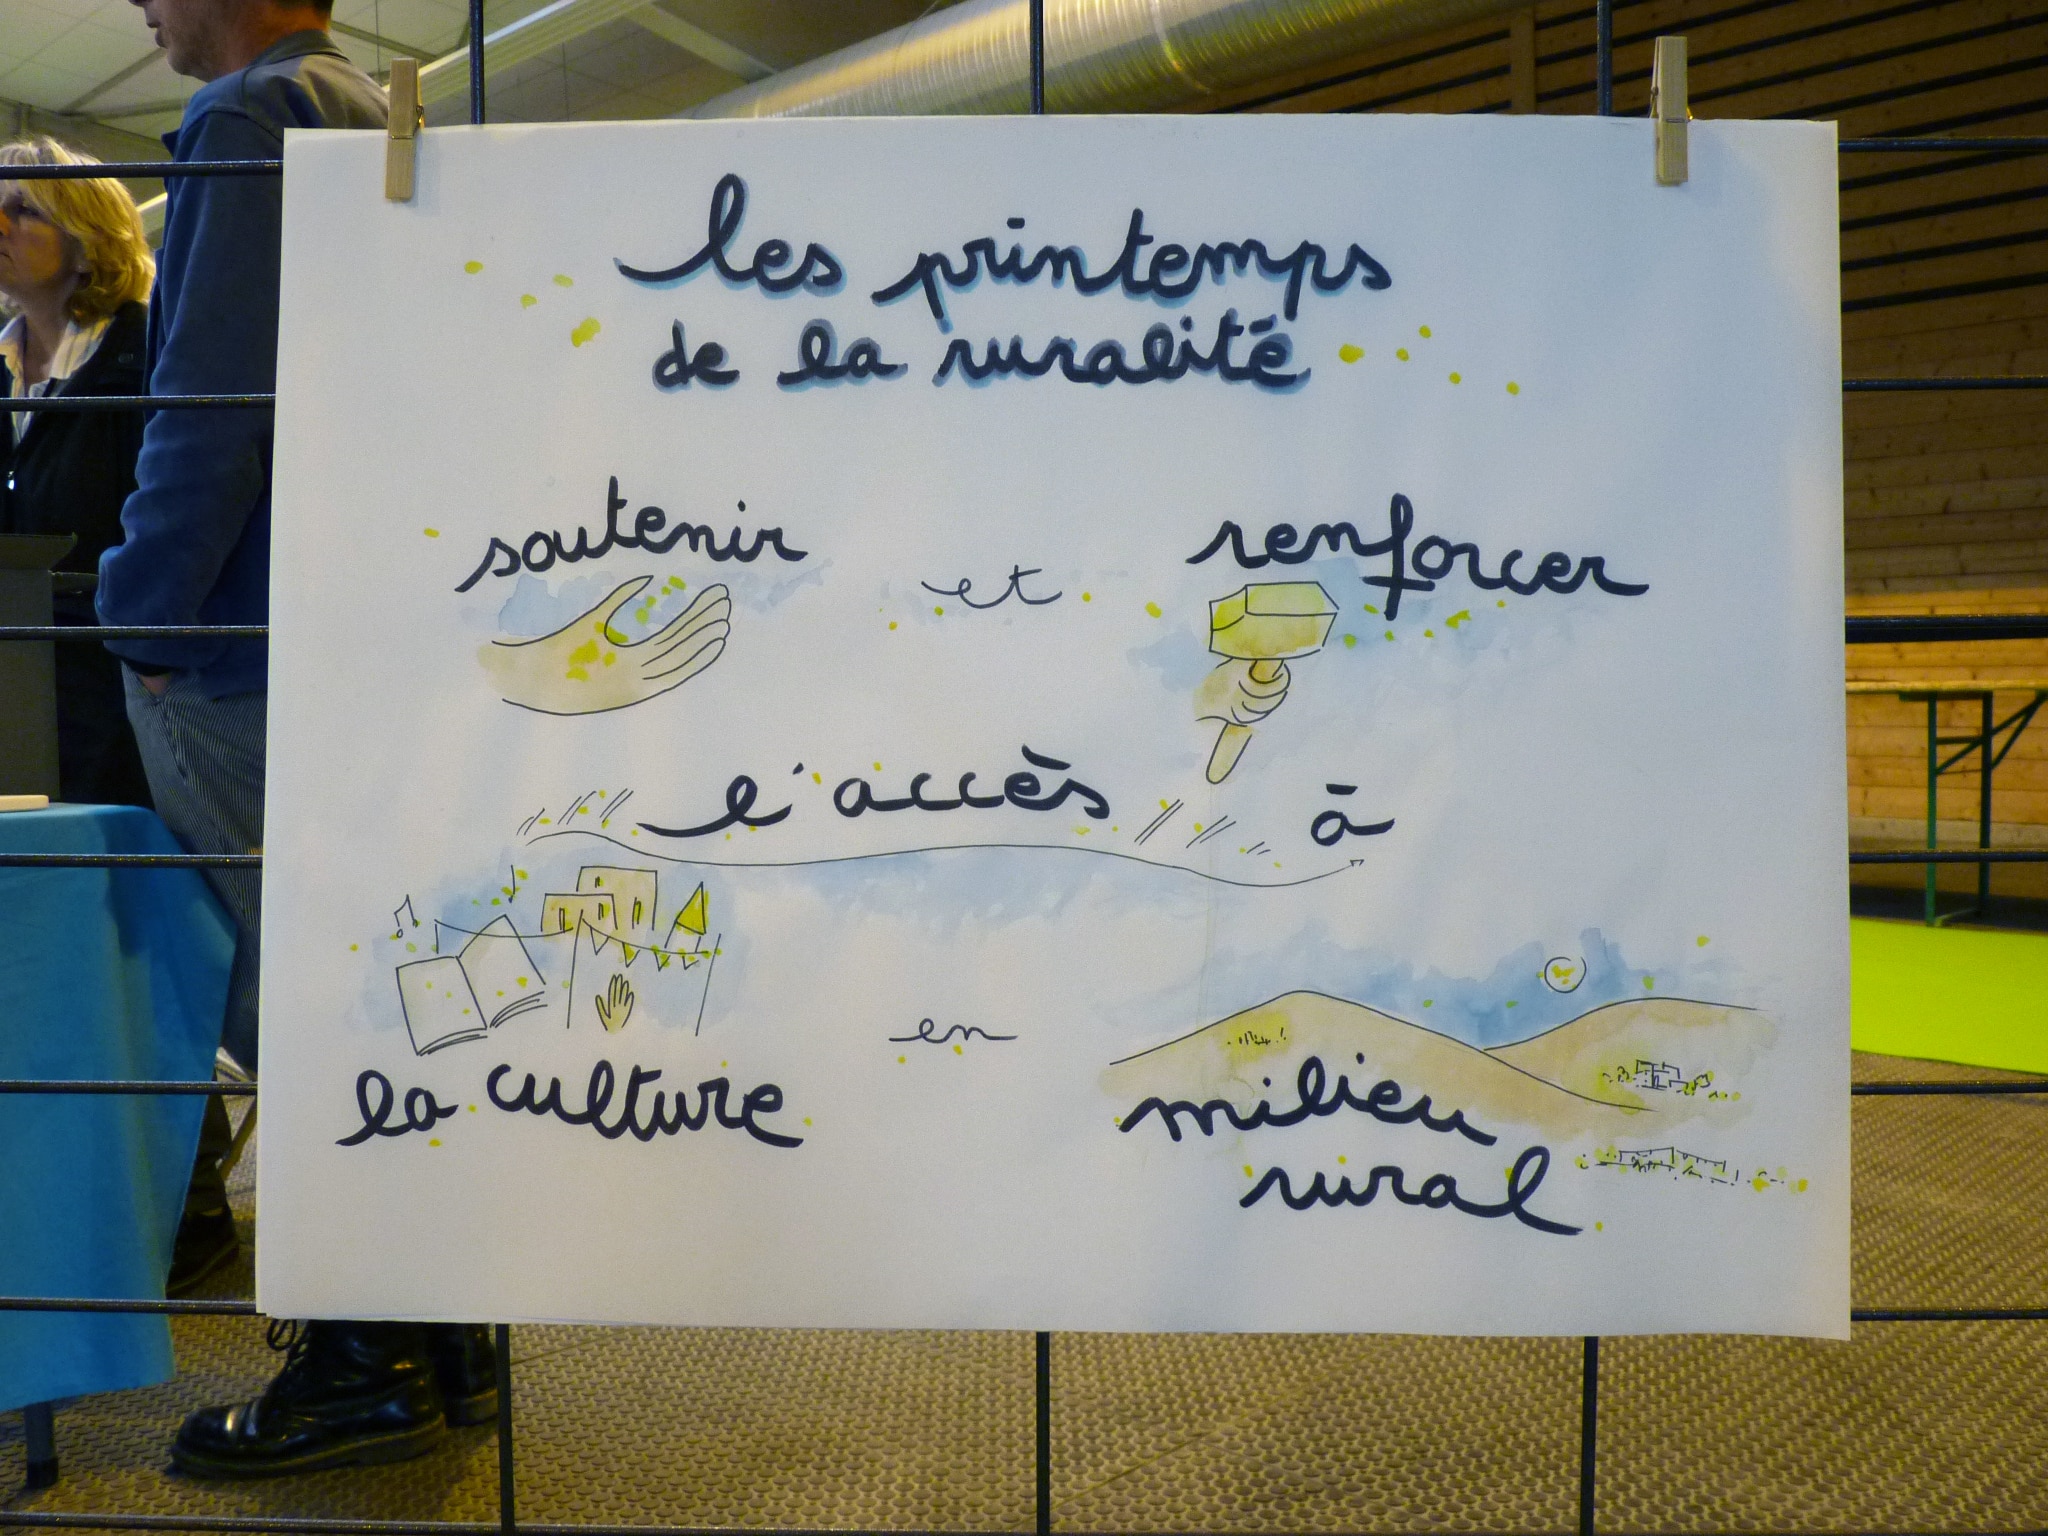 les printemps
de la ruralité
soutenir et renforcer
l'accès à
la culture en milieu
rural